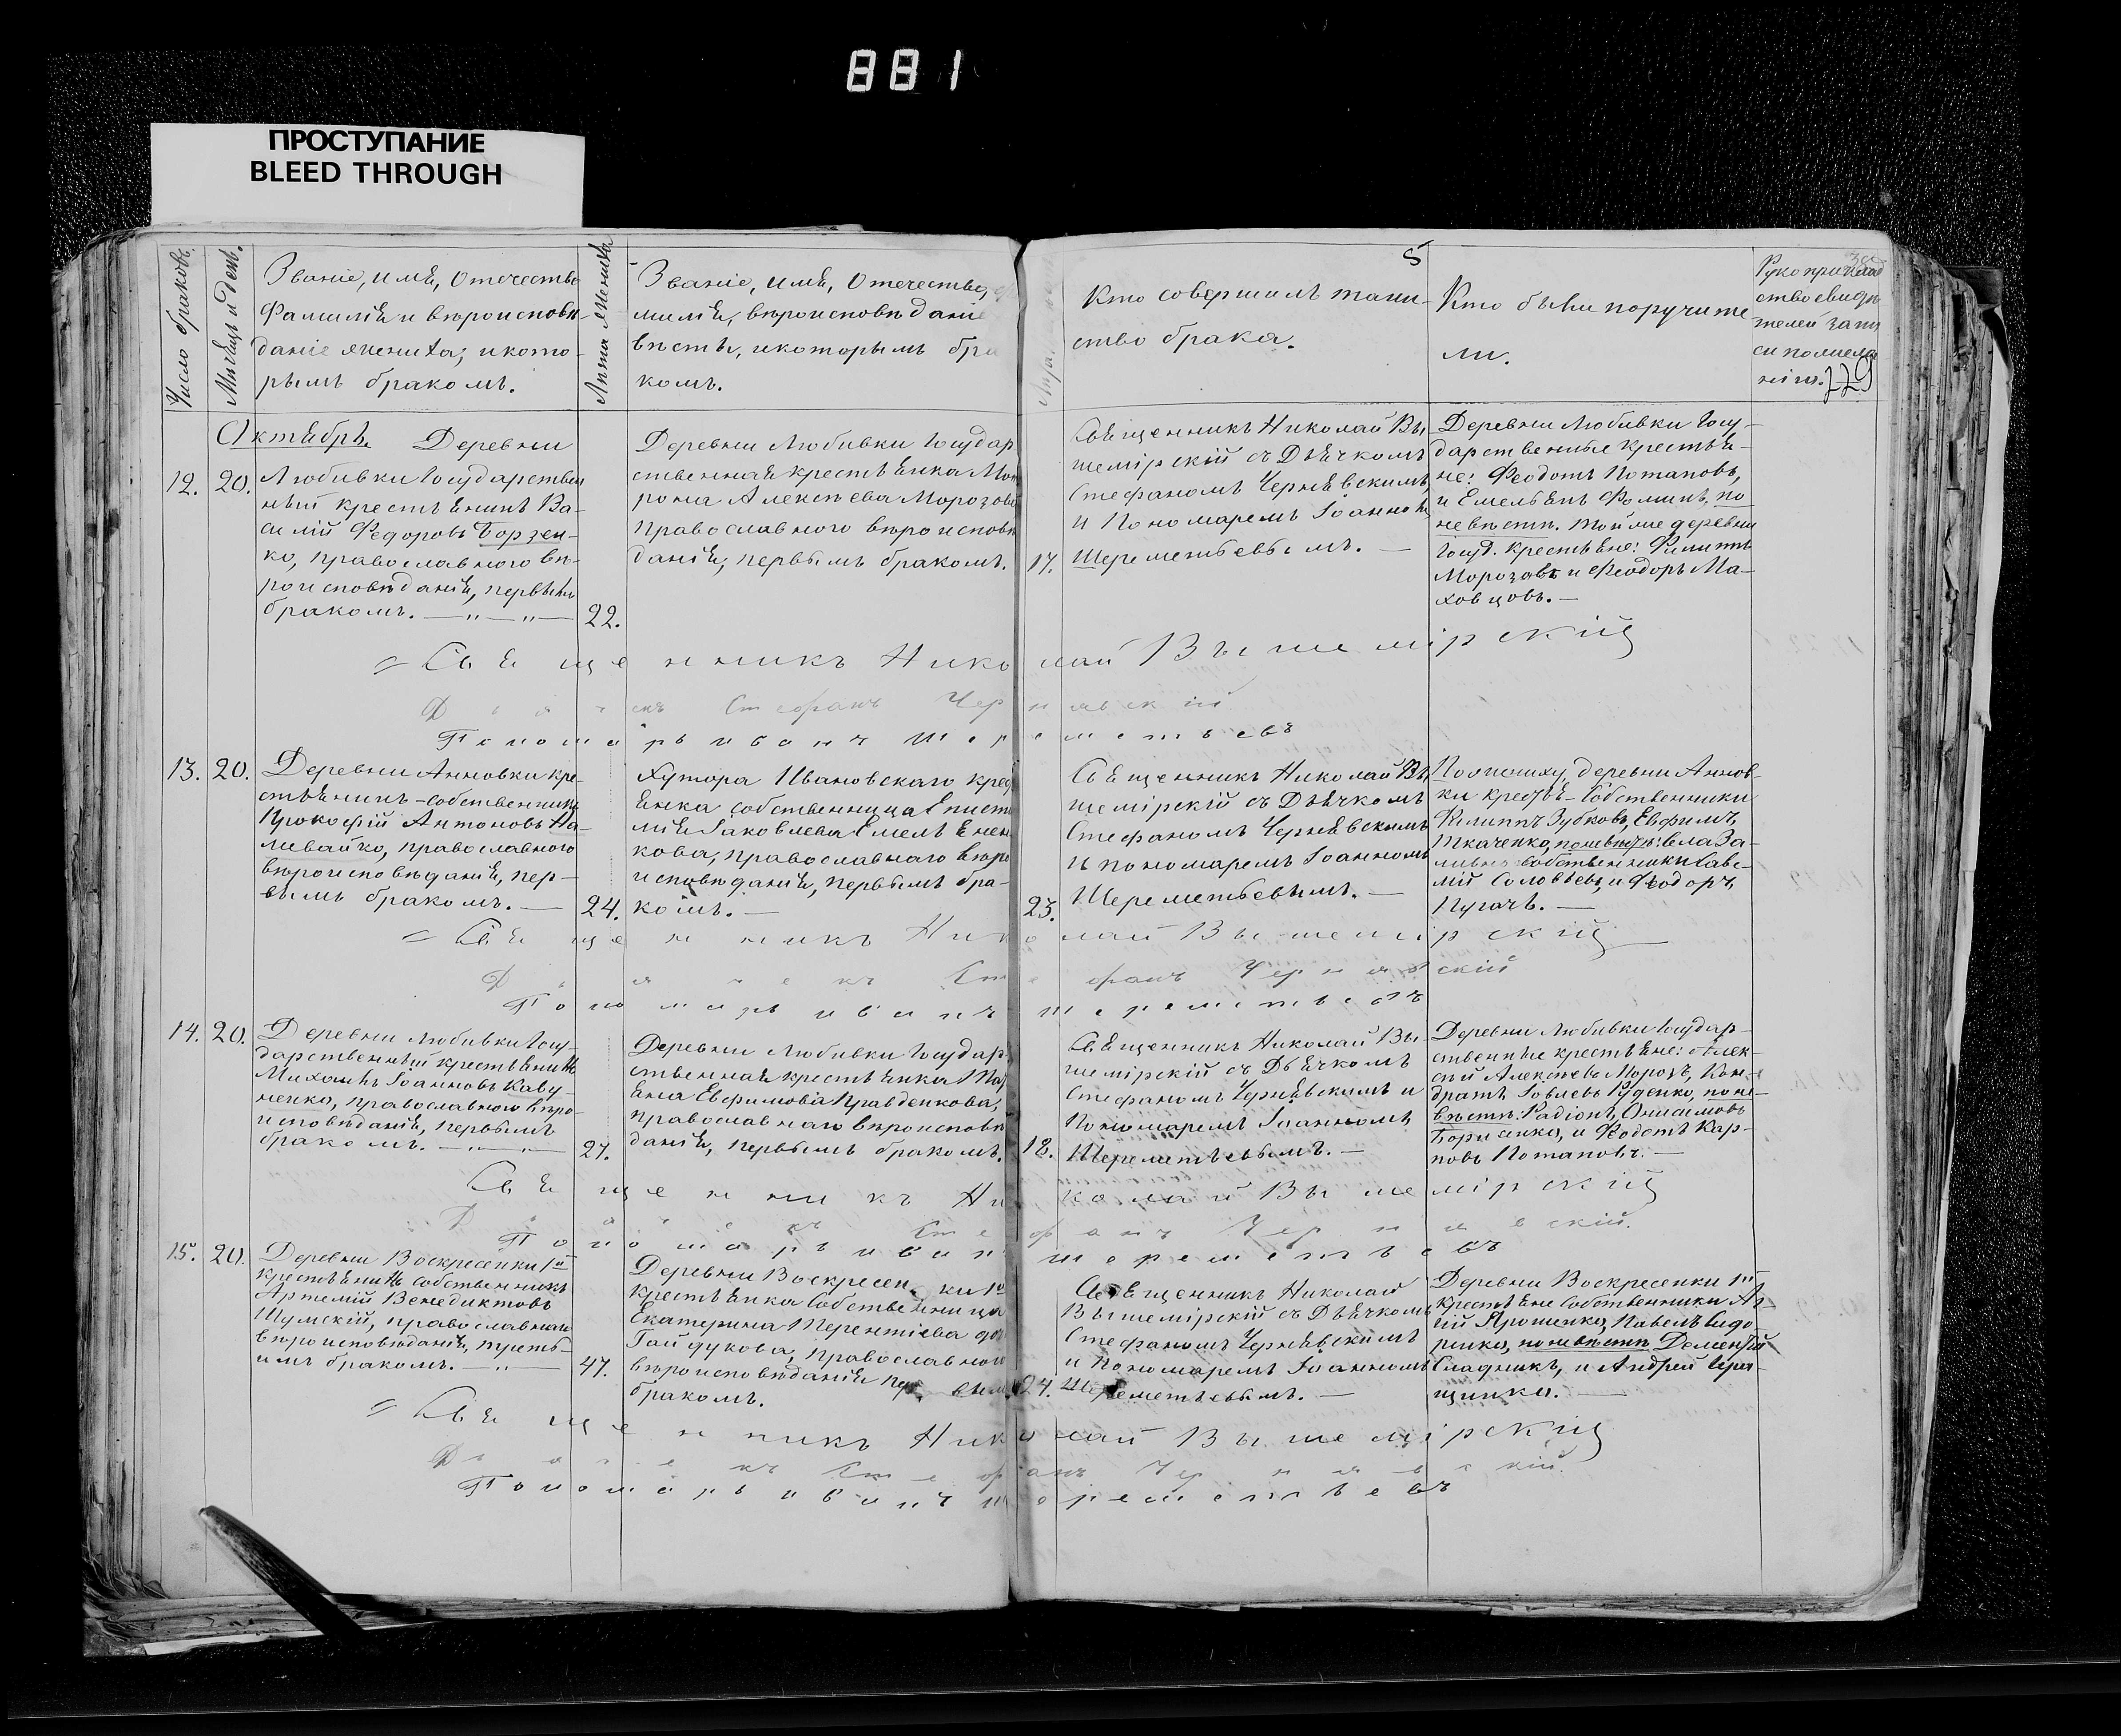 881
ПРОСТУПАНИЕ
BLEED THROUGH
Число браковъ.
Мѣсяцъ и день.
Званіе, имя, отечество
фамилія и вѣроисповѣ-
даніе жениха, и кото-
рымъ бракомъ.
Лѣта жениха
Званіе, имя, отечество,
милія, вѣроисповѣданіе
вѣсты, и которымъ бра
комъ.
5
Кто совершилъ таин-
ство брака.
Кто были поручите-
ли.
Рукоприклад
ство свидѣ
телей запи
си по желa
нію.
229
Октября Деревни
12. 20. Любивки Государствен
ный крестьянинъ Ва-
силій Федоровъ Борзен-
ко, православного вѣ-
роисповѣданія, первымъ
бракомъ. —„—„— 22.
Деревни Любивки Государ
ственная крестьянка
Алексѣева Морозова
православного вѣроисповѣ
данія, первымъ бракомъ. 17.
Священникъ Николай Вы
шемірскій съ Дьячкомъ
Стефаномъ Чернявскимъ,
и Пономаремъ Іоанномъ
Шереметьевымъ. —
Деревни Любивки Госу-
дарственные крестья-
не: Феодотъ Потаповъ,
и Емельянъ Фоминъ, по
невѣстѣ. той же деревни
Госуд. крестьяне: Филиппъ
Морозовъ и Феодоръ Ма-
ховцовъ. —
Священникъ Николай Вышемірскій
Дьячекъ Стефанъ Чернявскій
Пономарь Иванъ Шереметьевъ
13. 20. Деревни Анновки кре-
стьянинъ-собственникъ
Прокофій Антоновъ На-
ливайко, православного
вѣроисповѣданія, пер-
вымъ бракомъ. — 24.
Хутора Ивановскаго крес
янка собственница Епист
мія Іаковлева Емельянен
кова, православнаго вѣро
исповѣданія, первымъ бра-
комъ. — 23.
Священникъ Николай Вы
шемірскій съ Дьячкомъ
Стефаномъ Чернявскимъ
и пономаремъ Іоанномъ
Шереметьевымъ. —
По жениху, деревни Аннов-
ки крестья-собственники
Филиппъ Зубковъ, Евфимъ
Ткаченко, по невѣстѣ:
собственники Саве-
лій Соловьевъ, и Феодоръ
Пугачь. —
Священникъ Николай Вышемірскій
Дьячекъ Стефанъ Чернявскій
Пономарь Иванъ Шереметьевъ
14. 20. Деревни Любивки Госу-
дарственный крестьянинъ
Михаилъ Іоанновъ Каву-
ненко, православного вѣро-
исповѣданія, первымъ
бракомъ. —„—„— 27.
Деревни Любивки Государ-
ственная крестьянка
Евфимова Правденкова,
православнаго вѣроисповѣ
данія, первымъ бракомъ. 18.
Священникъ Николай Вы-
шемірскій съ Дьячкомъ
Стефаномъ Чернявскимъ и
Пономаремъ Іоанномъ
Шереметьевымъ. —
Деревни Любивки Государ-
ственные крестьяне: Алек-
сѣй Алексѣевъ Морозъ, Кон-
дратъ Іовлевъ Руденко, по не-
вѣстѣ: Радіонъ, Онисимовъ
Борисенко, и Федотъ Кар-
повъ Потаповъ. —
Священникъ Николай Вышемірскій
Дьячекъ Стефанъ Чернявскій.
Пономарь Иванъ Шереметьевъ
15. 20. Деревни Воскресенки 1й
крестьянинъ собственникъ
Артемій Венедиктовъ
Шумскій, православнаго
вѣроисповѣданія, треть-
имъ бракомъ. —„— 47.
Деревни Воскресенки 1й
крестьянка собственница
Екатерина Терентіева
Гайдукова, православного
вѣроисповѣданія первымъ
бракомъ. 24.
Священникъ Николай
Вышемірскій съ Дьячкомъ
Стефаномъ Чернявскимъ
и Пономаремъ Іоанномъ
Шереметьевымъ. —
Деревни Воскресенки 1й
крестьяне собственники
Ярошенко, Павелъ Сидо-
ренко, по невѣстѣ Дементій
Сладникъ, и Андрей
щинко. —
Священникъ Николай Вышемірскій
Дьячекъ Стефанъ Чернявскій.
Пономарь Иванъ Шереметьевъ